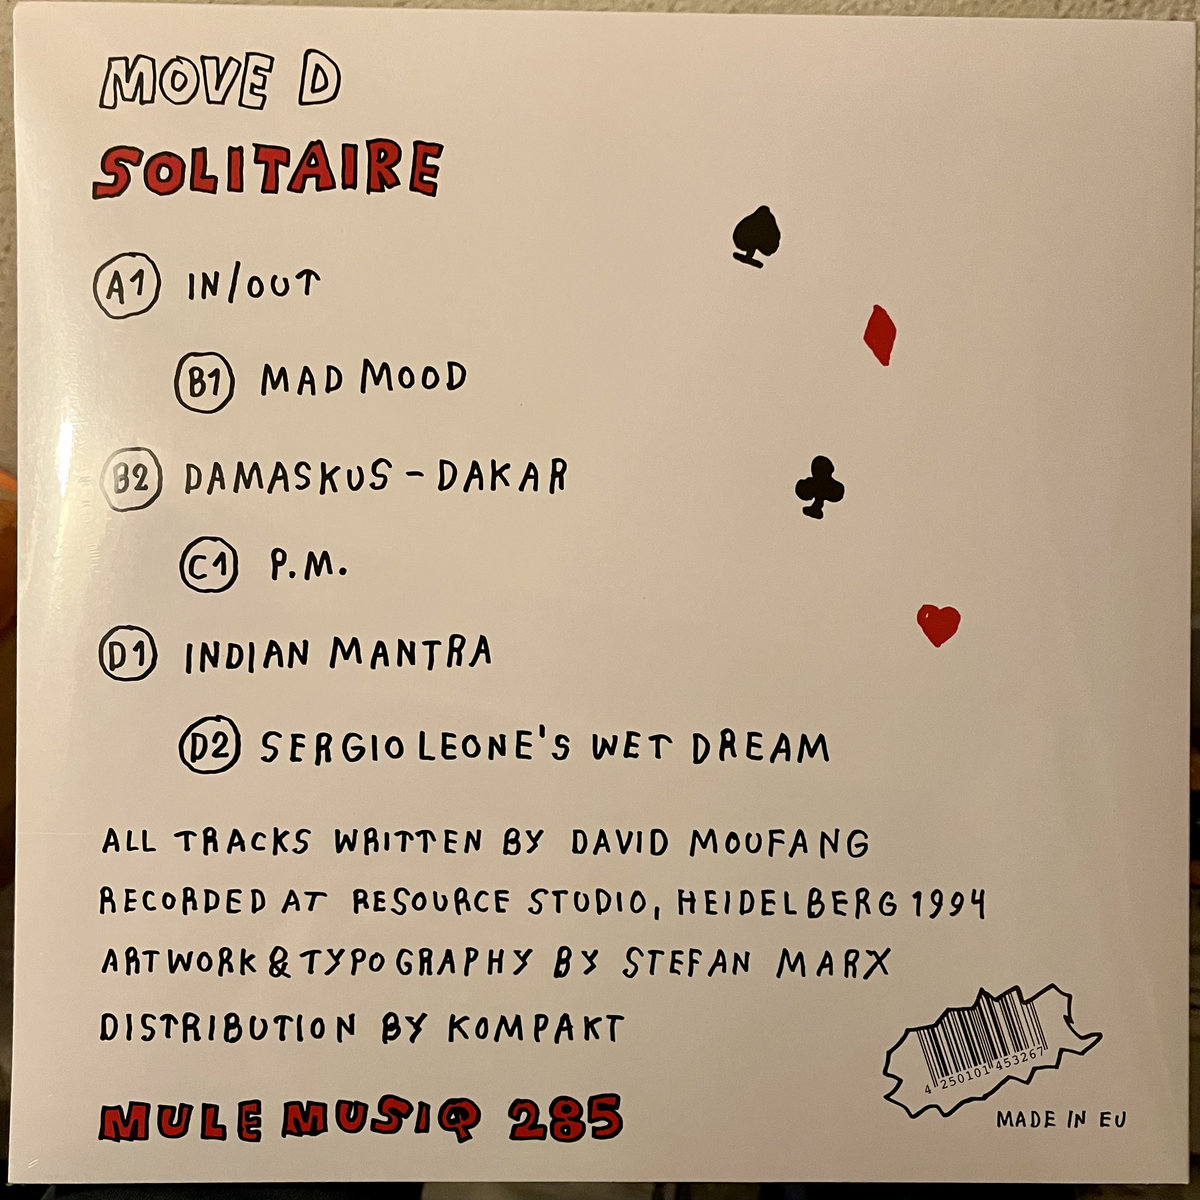 MOVE D
SOLITAIRE
A1 IN/OUT
B1 MAD MOOD
B2 DAMASKUS - DAKAR
C1 P.M.
D1 INDIAN MANTRA
D2 SERGIO LEONE'S WET DREAM
ALL TRACKS WRITTEN BY DAVID MOUFANG
RECORDED AT RESOURCE STUDIO, HEIDELBERG 1994
ARTWORK & TYPOGRAPHY BY STEFAN MARX
DISTRIBUTION BY KOMPAKT
MULE MUSIQ 285
4 250101 453267
MADE IN EU